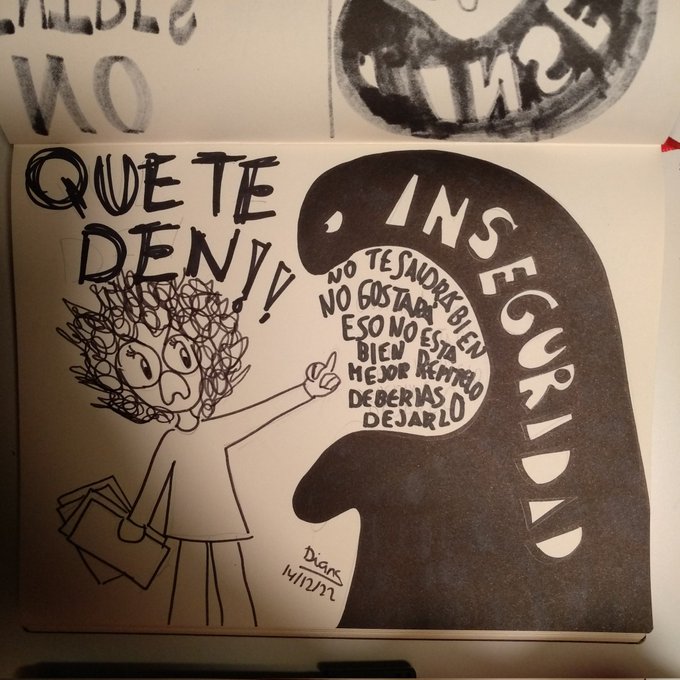 NO
INSE
QUE TE
DEN!!
INSEGURIDAD
NO TE SALDRÁ BIEN
NO GOSTARÁ
ESO NO ESTA
BIEN
MEJOR REPITELO
DEBERIAS
DEJARLO
14/12/22